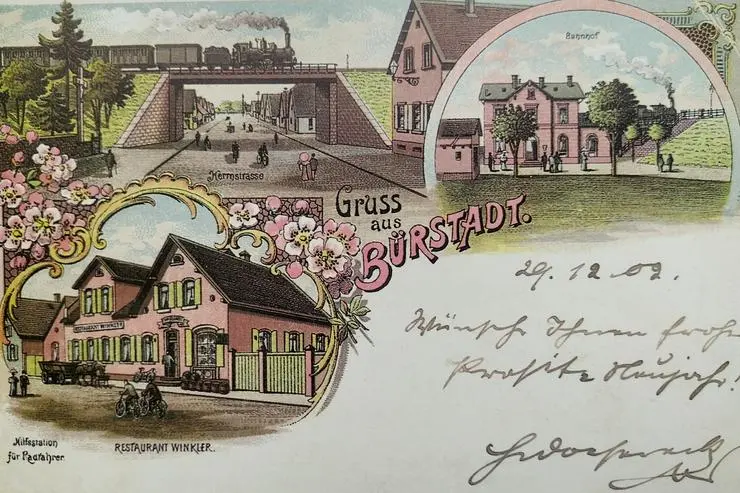 Bahnhof
Herrnstrasse
Gruss
aus
BÜRSTADT.
29.12.02.
Wünsche Ihnen frohe
Prosit Neujahr!
RESTAURANT WINKLER
Hilfsstation
für Radfahrer.
RESTAURANT WINKLER.